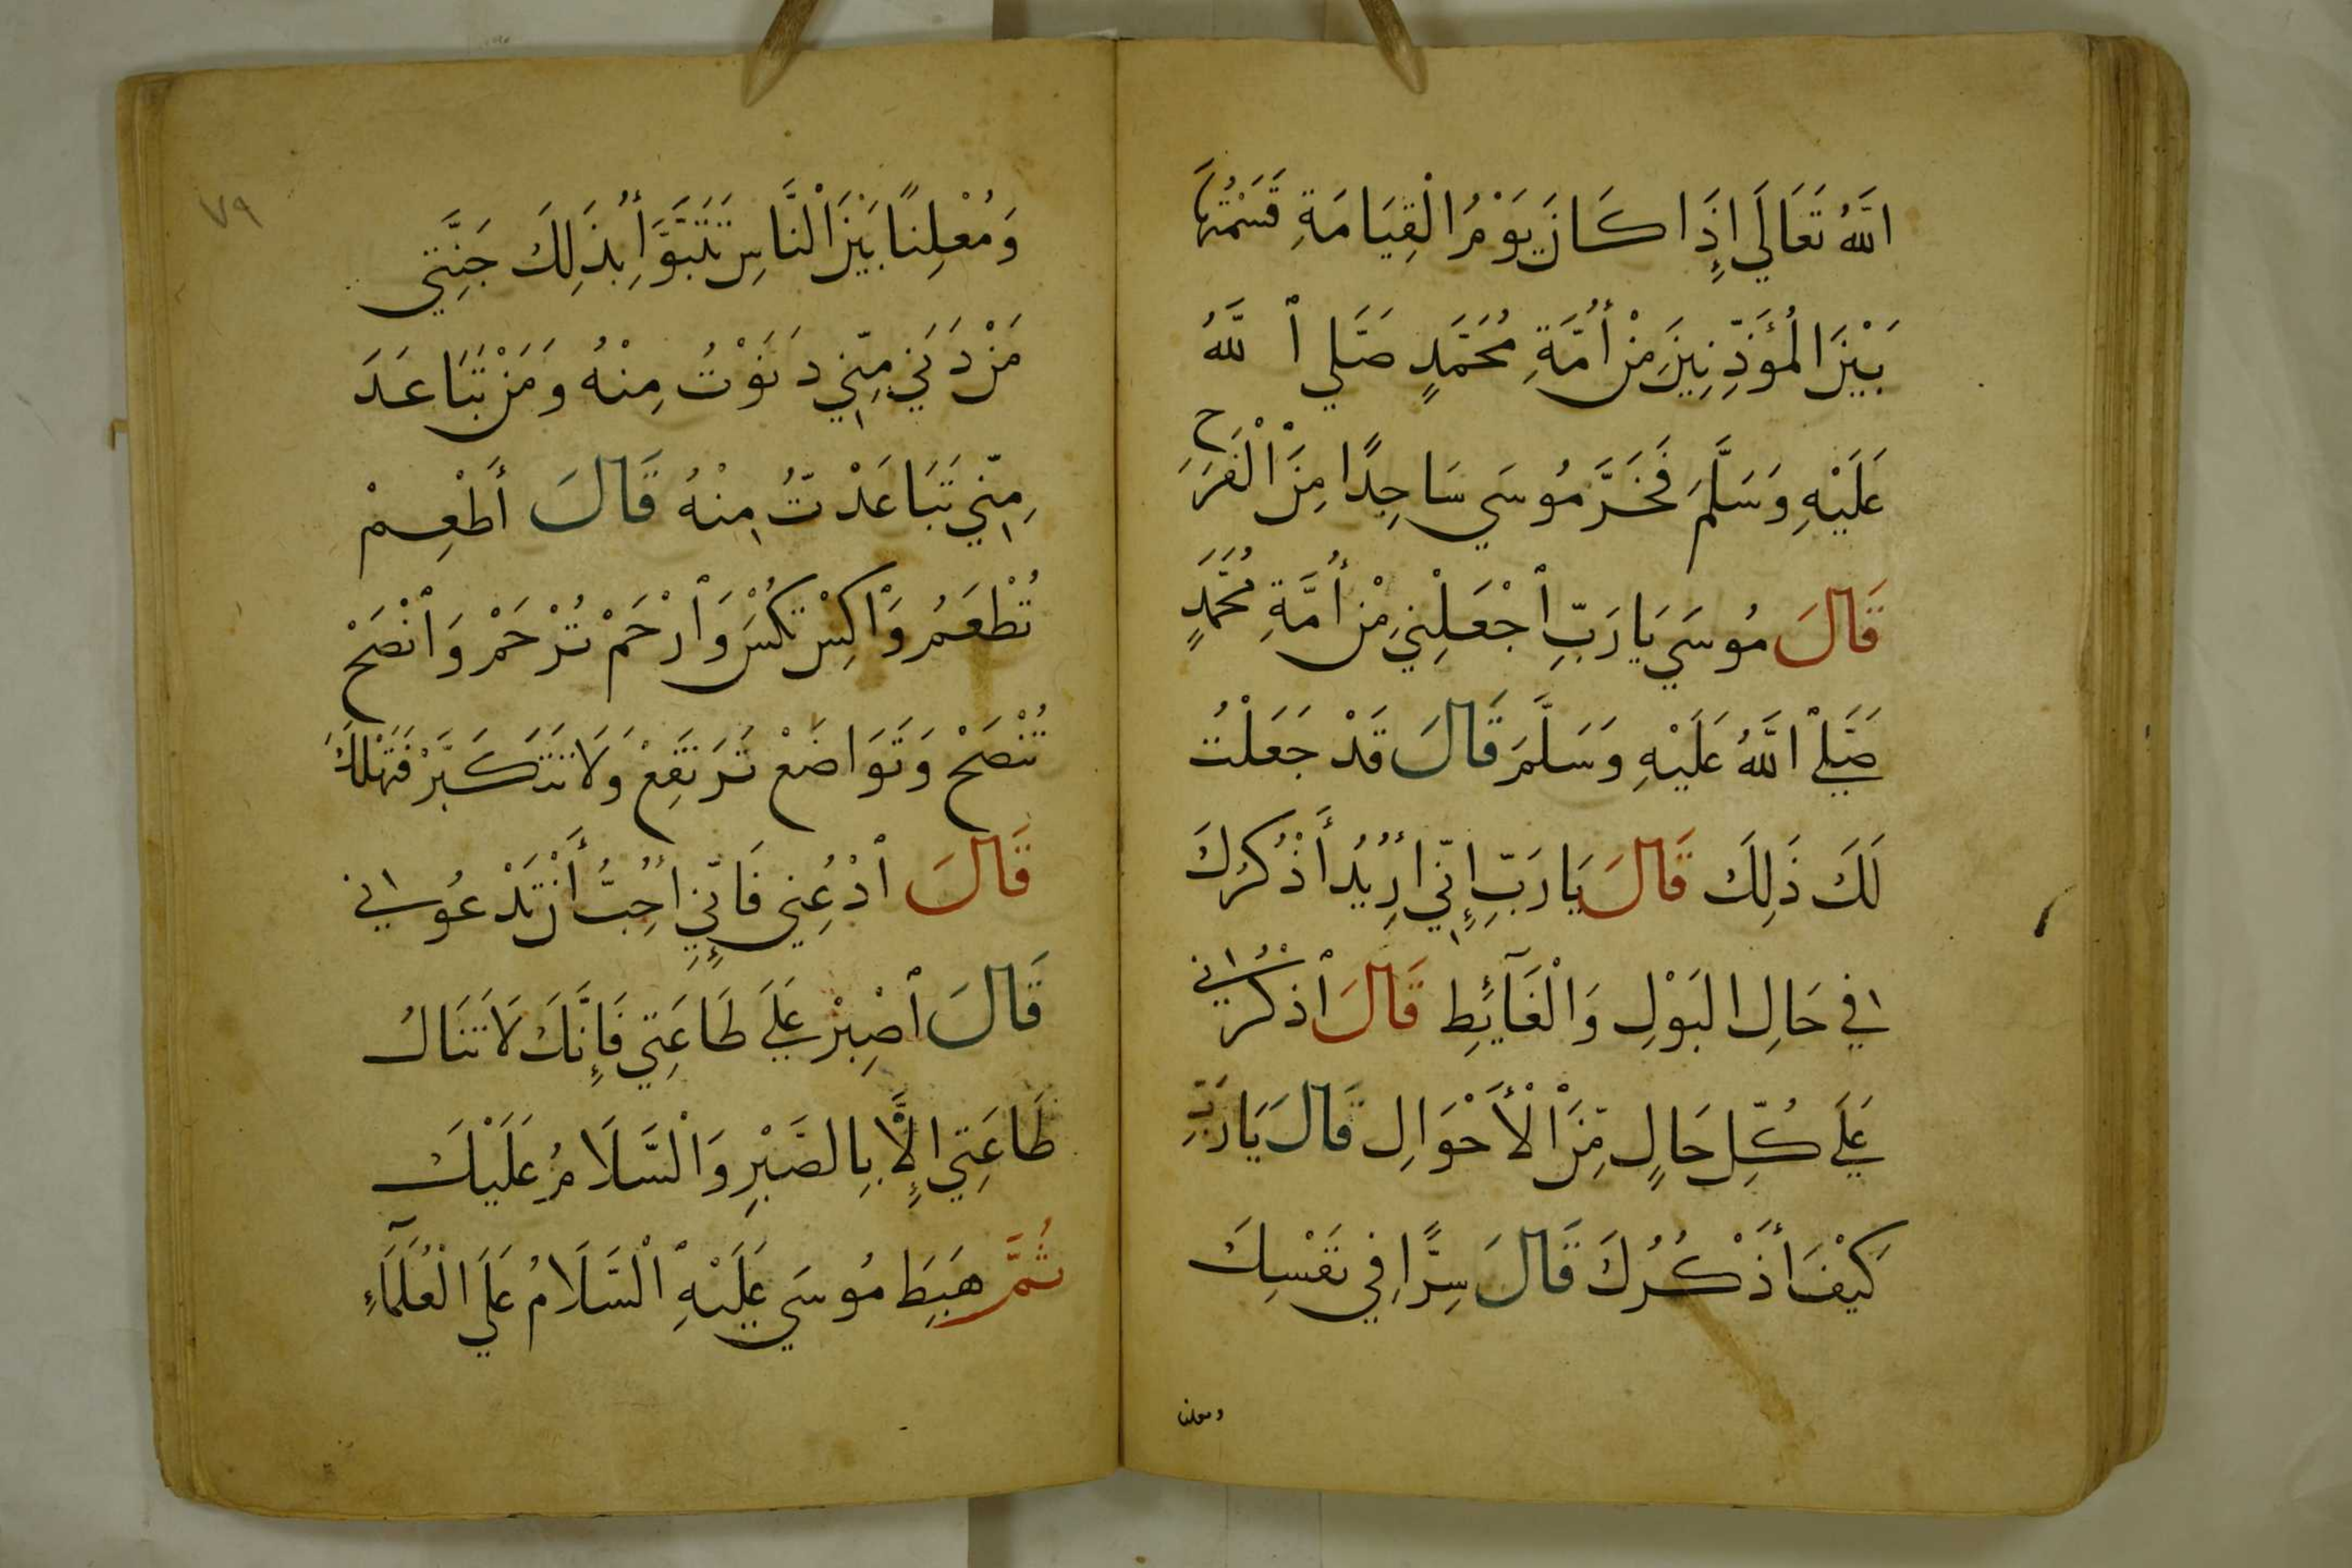 اللَّهُ تَعَالَي إِذَا كَانَ يَوْمُ الْقِيَامَةِ قَسَمْتُهَا
بَيْنَ الْمُؤَذِّنِينَ مِنْ أُمَّةِ مُحَمَّدٍ صَلَّي اللَّهُ
عَلَيْهِ وَسَلَّمَ فَخَرَّ مُوسَي سَاجِدًا مِنَ الْفَرَحِ
قَالَ مُوسَي يَا رَبِّ اجْعَلْنِي مِنْ أُمَّةِ مُحَمَّدٍ
صَلَّي اللَّهُ عَلَيْهِ وَسَلَّمَ قَالَ قَدْ جَعَلْتُ
لَكَ ذَلِكَ قَالَ يَا رَبِّ إِنِّي أُرِيدُ أَذْكُرُكَ
فِي حَالِ الْبَوْلِ وَالْغَآئِطِ قَالَ اذْكُرْنِي
عَلَي كُلِّ حَالٍ مِّنَ الْأَحْوَالِ قَالَ يَا رَبِّ
كَيْفَ أَذْكُرُكَ قَالَ سِرًّا فِي نَفْسِكَ
ومعلنا
٧٩
وَمُعْلِنًا بَيْنَ النَّاسِ تَتَبَوَّأُ بِذَلِكَ جَنَّتِي
مَنْ دَنَي مِنِّي دَنَوْتُ مِنْهُ وَمَنْ تَبَاعَدَ
مِنِّي تَبَاعَدْتُ مِنْهُ قَالَ أَطْعِمْ
تُطْعَمُ وَاكِسْ تُكْسَ وَارْحَمْ تُرْحَمْ وَانْصَحْ
تُنْصَحْ وَتَوَاضَعْ تَرْتَفِعْ وَلَا تَتَكَبَّرْ فَتَهْلَكَ
قَالَ ادْعُنِي فَإِنِّي أُحِبُّ أَنْ تَدْعُونِي
قَالَ اصْبِرْ عَلَي طَاعَتِي فَإِنَّكَ لَا تَنَالُ
طَاعَتِي إِلَّا بِالصَّبْرِ وَالسَّلَامُ عَلَيْكَ
ثُمَّ هَبَطَ مُوسَي عَلَيْهِ السَّلَامُ عَلَي الْعُلَمَآءِ